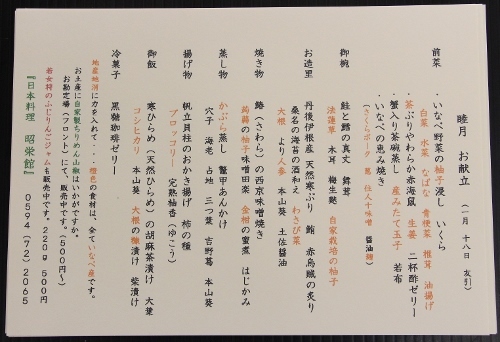 睦月 お献立 (一月 十八日 友引)
前菜
・いなべ野菜の柚子浸し いくら
白菜 水菜 なばな 青梗菜 椎茸 油揚げ
・茶ぶりやわらか赤海鼠 生姜 二杯酢ゼリー
・蟹入り茶碗蒸し 産みたて玉子 若布
・いなべの恵み焼き
(さくらポーク 葱 仕人十味噌 醤油麹)
御椀
鮭と鱈の真丈 舞茸
法蓮草 木耳 梅生麩 自家栽培の柚子
お造里
丹後伊根産 天然寒ぶり 鮪 赤烏賊の炙り
桑名の海苔の酒和え わさび菜
大根 より人参 本山葵 土佐醤油
焼き物
鰆(さわら)の西京味噌焼き
蒟蒻の柚子味噌田楽 金柑の蜜煮 はじかみ
蒸し物
かぶら蒸し 鼈甲あんかけ
穴子 海老 占地 三つ葉 吉野葛 本山葵
揚げ物
帆立貝柱のおかき揚げ 柿の種
ブロッコリー 完熟柚香(ゆこう)
御飯
寒ひらめ(天然ひらめ)の胡麻茶漬け 大葉
コシヒカリ 本山葵 大根の糠漬け 柴漬け
冷菓子
黒糖珈琲ゼリー
地産地消に力を入れて・・・橙色の食材は、全ていなべ産です。
お土産に自家製ちりめん山椒はいかがですか。
お勘定場(フロント)にて、販売中です。(500円〜)
若女将のふじりんごジャムも販売中です。220g 500円
『日本料理 昭栄館』 0594(72)2065